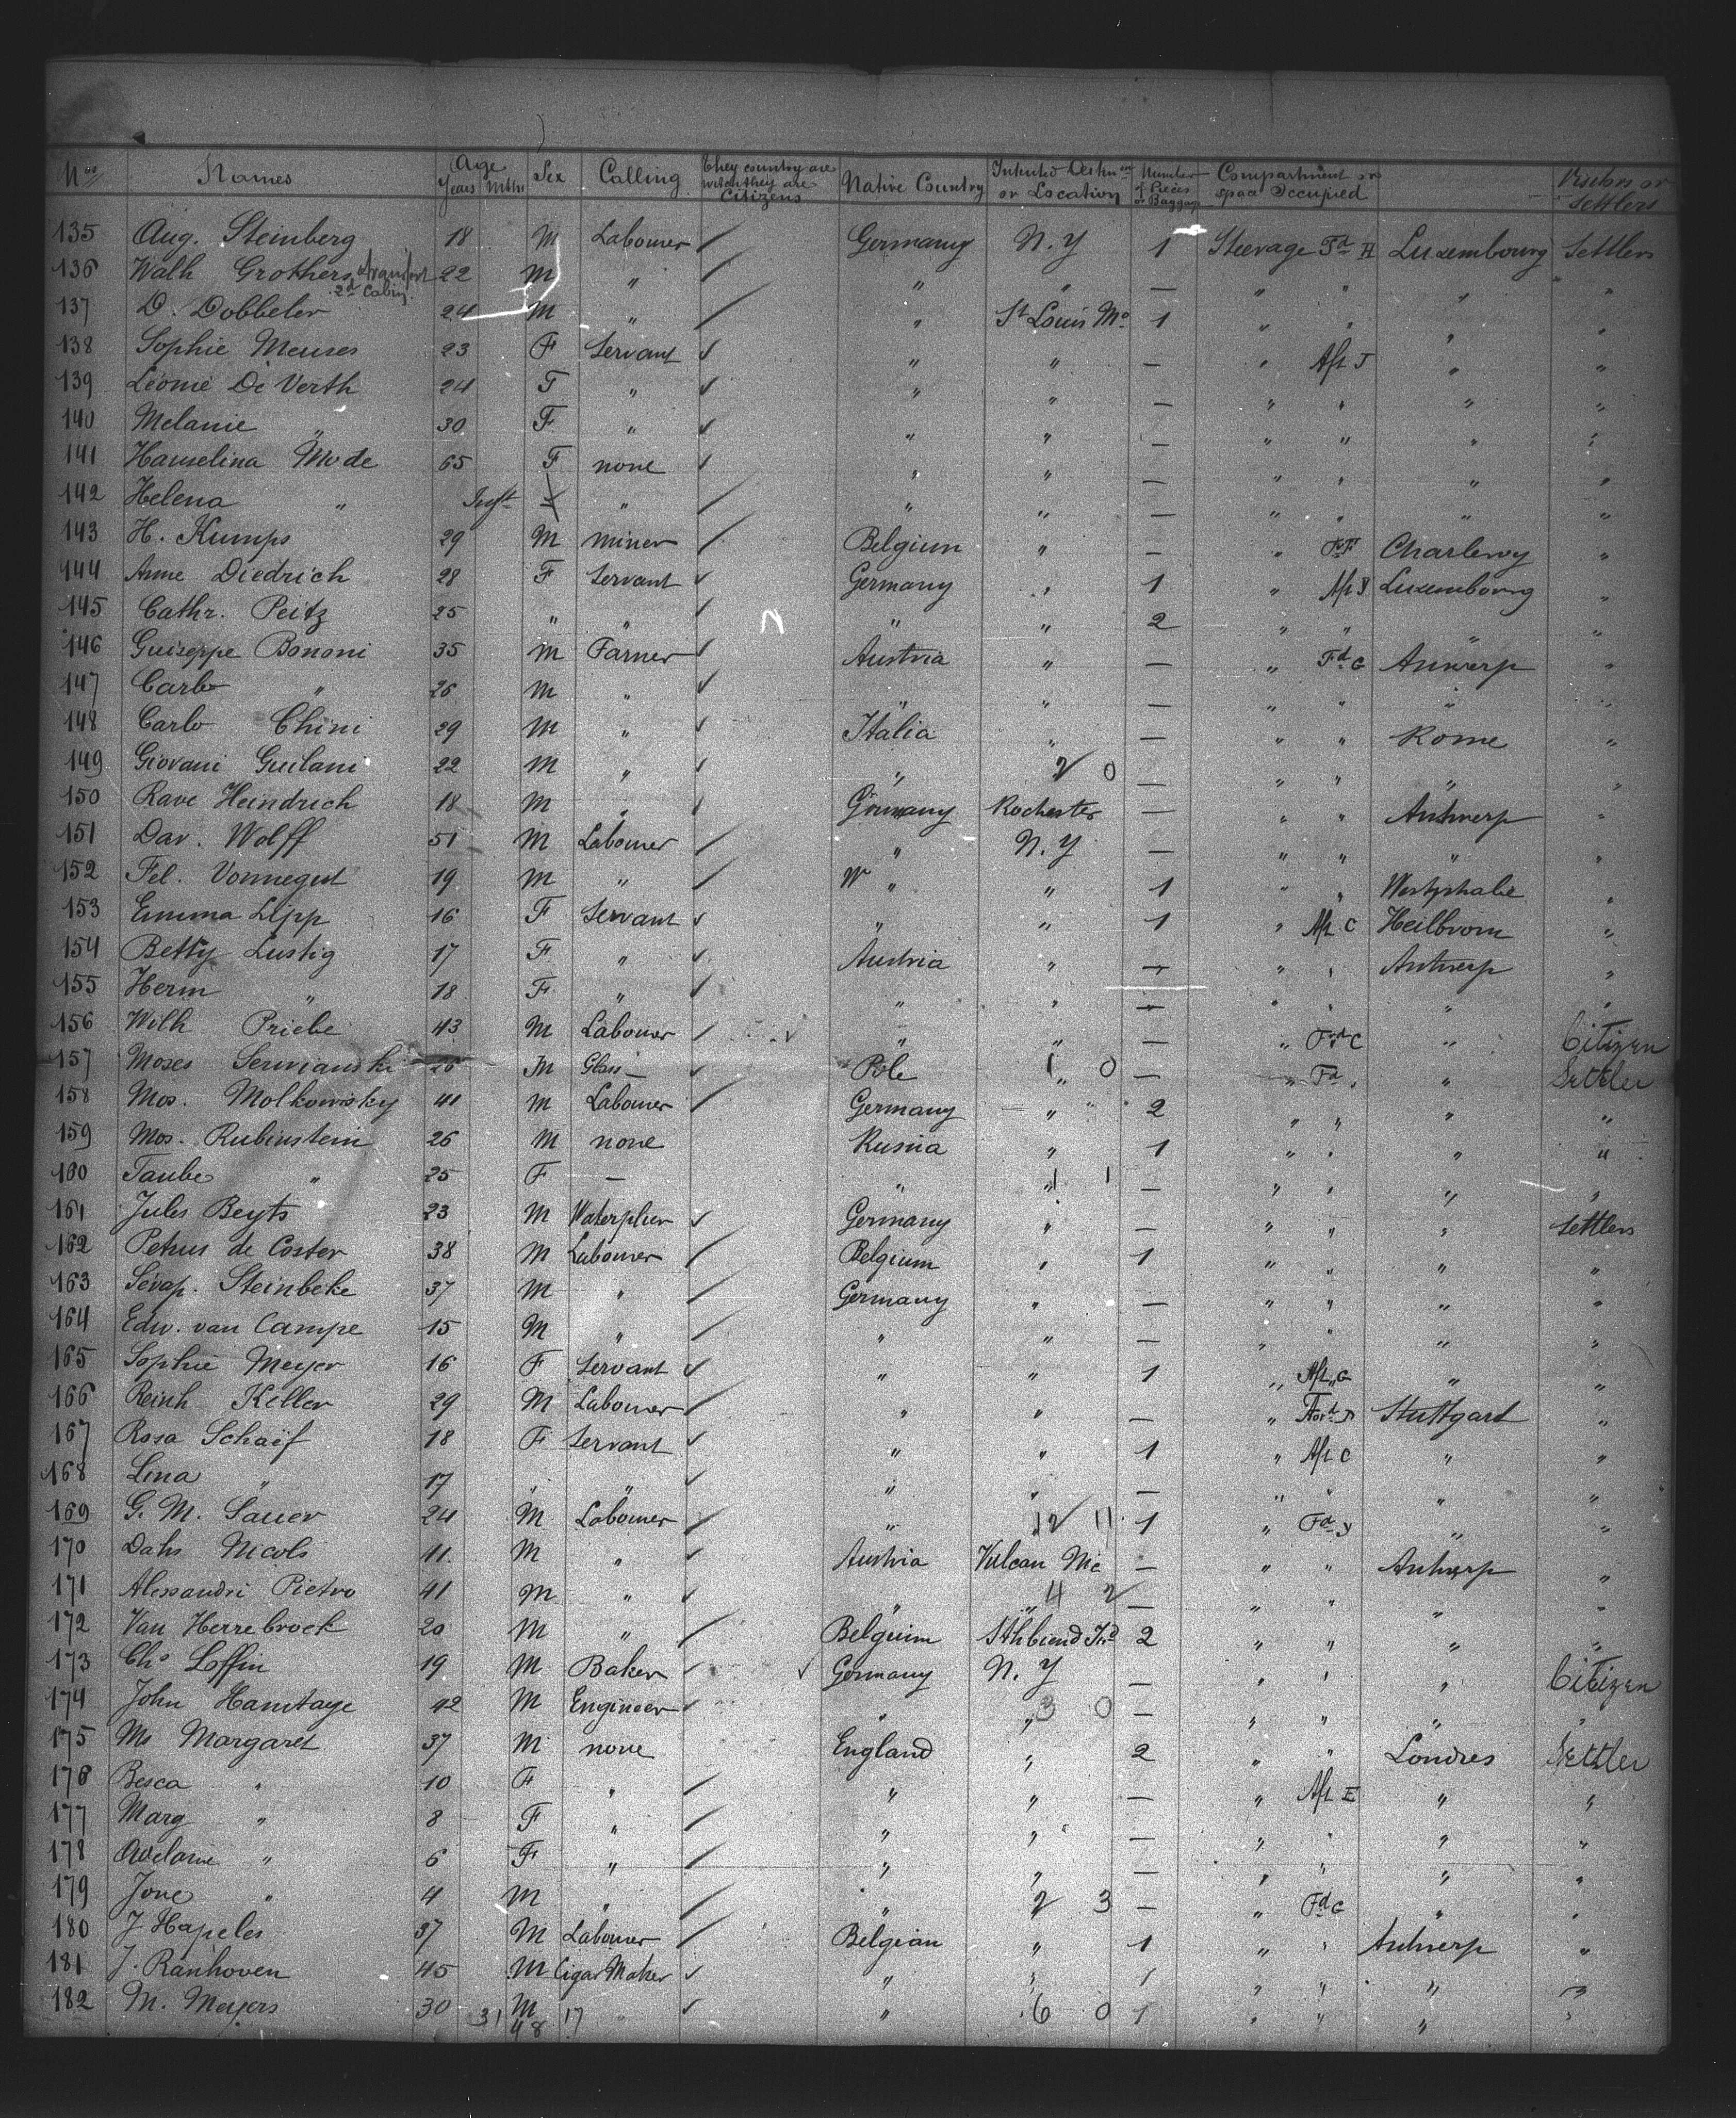 Nos Names Age Years Mths Sex Calling They country are witch they are Citizens Native Country Intented Destin on or Location Number of Pieces of Baggage Compartment or Space Occupied Visitors or Settlers
135 Aug. Steinberg 18 M Labourer Germany N.Y 1 Steerage Fd H Luxembourg Settlers
136 Walh Grothers transfert 2d Cabin 22 M " " " — " " " "
137 D. Dobbeler 24 M " " St Louis Mo 1 " " " "
138 Sophie Meuses 23 F Servant " " — " Aft J " "
139 Léonie De Verth 24 F " " " — " " " "
140 Melanie " 30 F " " " — " " " "
141 Hanselina Mode 65 F none " " — " " " "
142 Helena " Inft " " " — " " " "
143 H. Kumps 29 M miner Belgium " — " Charleroy "
144 Anne Diedrich 28 F Servant Germany " 1 " Aft Luxembourg "
145 Cathr. Peitz 25 " " " " 2 " " " "
146 Guiseppe Bononi 35 M Farner Austria " — " Fd G Antwerp "
147 Carlo " 26 M " " " — " " " "
148 Carlo Chini 29 M " Italia " — " " Rome "
149 Giovani Guilani 22 M " " 2 0 — " " " "
150 Rave Heindrich 18 M " Germany Rochester — " " Antwerp "
151 Dav. Wolff 51 M Labourer " N.Y — " " " "
152 Fel. Vonnegut 19 M " W " " 1 " " Westphale "
153 Emma Lipp 16 F Servant " " 1 " Aft C Heilbronn "
154 Betty Lustig 17 F " Austria " — " " Antwerp "
155 Herm " 18 F " " " — " " " "
156 Wilh Priebe 43 M Labourer " " — " Fd C " Citizen
157 Moses 26 M Glass — Pole " 1 0 — " Fd " " Settler
158 Mos. Molkowisky 41 M Labourer Germany " 2 " " " "
159 Mos. Rubinstein 26 M none Rusnia " 1 " " " "
160 Taube " 25 F — " " 1 1 — " " " "
161 Jules Beyts 23 M Germany " — " " " Settlers
162 Petrus de Coster 38 M Labourer Belgium " 1 " " " "
163 Sevap. Steinbeke 37 M " Germany " — " " " "
164 Edw. van Campe 15 M " " " — " " " "
165 Sophie Meyer 16 F Servant " " 1 " Aft G " "
166 Reinh Keller 29 M Labourer " " — " Stuttgard "
167 Rosa Schaïf 18 F Servant " " 1 " Aft C " "
168 Lina " 17 " " " " — " " " "
169 G. M. Sauer 24 M Labourer " 12 11 1 " Fd " "
170 Dahs Nicols 11 M " Austria Vulcan Mic — " " Antwerp "
171 Alessandri Pietro 41 M " " " 4 2 — " " " "
172 Van Herrebrock 20 M " Belgium Sthbiend Ind 2 " " " "
173 Chs Loffin 19 M Baker Germany N.Y — " " " Citizen
174 John Hamtaye 42 M Engineer " " 3 0 — " " " "
175 Ms Margaret 37 M none England " 2 " " Londres Settler
176 Besca " 10 F " " " — " Aft E " "
177 Marg " 8 F " " " — " " " "
178 Adelaine " 6 F " " " — " " " "
179 Jone " 4 M " " 2 3 — " Fd G " "
180 J Hapeles 37 M Labourer Belgian " 1 " " Antwerp "
181 J. Ranhoven 45 M Cigar Maker " " 1 " " " "
182 M. Meyers 30 M " " 6 0 1 " " " "
31 48 17